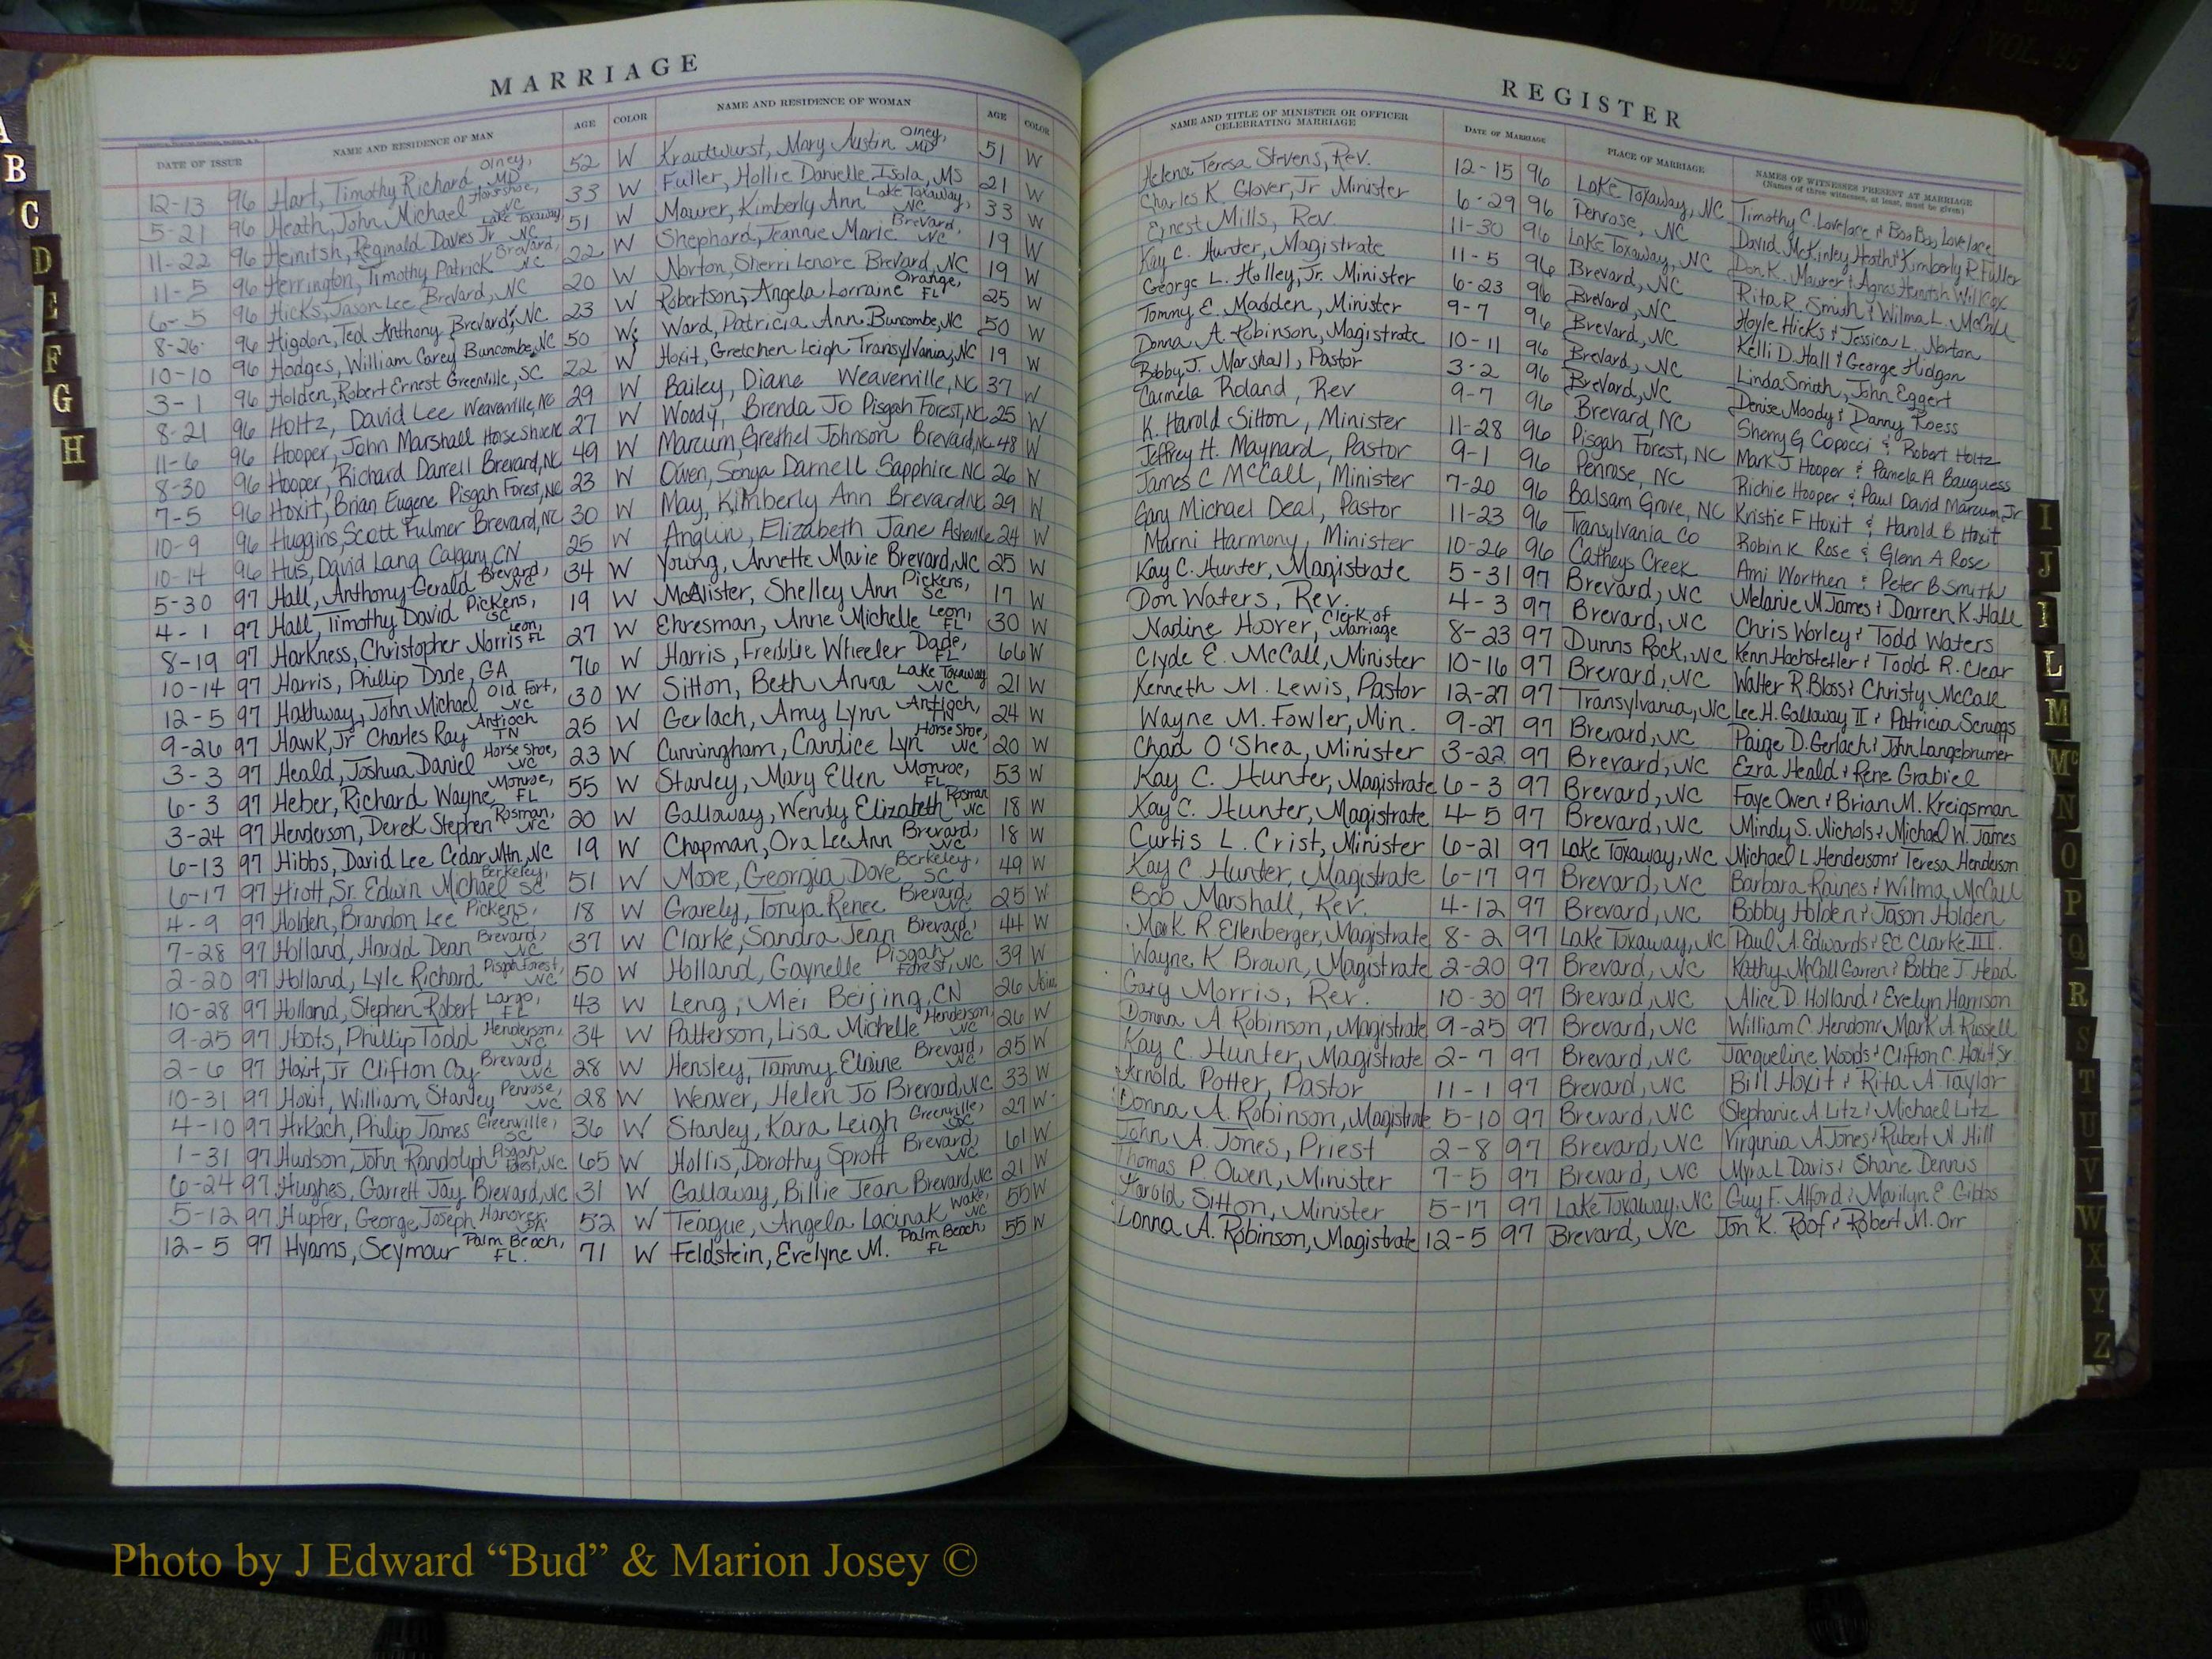 MARRIAGE
DATE OF ISSUE NAME AND RESIDENCE OF MAN AGE COLOR NAME AND RESIDENCE OF WOMAN AGE COLOR
12-13 96 Hart, Timothy Richard Olney, MD 52 W Krautwurst, Mary Austin Olney, MD 51 W
5-21 96 Heath, John Michael Horseshoe, NC 33 W Fuller, Hollie Danielle Isola, MS 21 W
11-22 96 Heinitsh, Reginald Davies Jr Lake Toxaway, NC 51 W Maurer, Kimberly Ann Lake Toxaway, NC 33 W
11-5 96 Herrington, Timothy Patrick Brevard, NC 22 W Shephard, Jeannie Marie Brevard, NC 19 W
6-5 96 Hicks, Jason Lee Brevard, NC 20 W Norton, Sherri Lenore Brevard, NC 19 W
8-26 96 Higdon, Ted Anthony Brevard, NC 23 W Robertson, Angela Lorraine Orange, FL 25 W
10-10 96 Hodges, William Carey Buncombe, NC 50 W Ward, Patricia Ann Buncombe, NC 50 W
3-1 96 Holden, Robert Ernest Greenville, SC 22 W Hoxit, Gretchen Leigh Transylvania, NC 19 W
8-21 96 Holtz, David Lee Weaverville, NC 29 W Bailey, Diane Weaverville, NC 37 W
11-6 96 Hooper, John Marshall Horse Shoe NC 27 W Woody, Brenda Jo Pisgah Forest, NC 25 W
8-30 96 Hooper, Richard Darrell Brevard, NC 49 W Marcum, Grethel Johnson Brevard, NC 48 W
7-5 96 Hoxit, Brian Eugene Pisgah Forest, NC 23 W Owen, Sonya Darnell Sapphire NC 26 W
10-9 96 Huggins, Scott Fulmer Brevard, NC 30 W May, Kimberly Ann Brevard NC 29 W
10-14 96 Hus, David Lang Calgary, CN 25 W Anglin, Elizabeth Jane Asheville 24 W
5-30 97 Hall, Anthony Gerald Brevard, NC 34 W Young, Annette Marie Brevard, NC 25 W
4-1 97 Hall, Timothy David Pickens, SC 19 W McAlister, Shelley Ann Pickens, SC 17 W
8-19 97 Harkness, Christopher Norris Leon, FL 27 W Ehresman, Anne Michelle Leon, FL 30 W
10-14 97 Harris, Phillip Dade, GA 76 W Harris, Freddie Wheeler Dade, FL 66 W
12-5 97 Hathway, John Michael Old Fort, NC 30 W Sitton, Beth Anna Lake Toxaway NC 21 W
9-26 97 Hawk, Jr Charles Ray Antioch TN 25 W Gerlach, Amy Lynn Antioch, TN 24 W
3-3 97 Heald, Joshua Daniel Horse Shoe, NC 23 W Cunningham, Candice Lyn Horse Shoe, NC 20 W
6-3 97 Heber, Richard Wayne Monroe, FL 55 W Stanley, Mary Ellen Monroe, FL 53 W
3-24 97 Henderson, Derek Stephen Rosman, NC 20 W Galloway, Wendy Elizabeth Rosman NC 18 W
6-13 97 Hibbs, David Lee Cedar Mtn, NC 19 W Chapman, Ora LeeAnn Brevard, NC 18 W
6-17 97 Hiott, Sr. Edwin Michael Berkeley, SC 51 W Moore, Georgia Dove Berkeley, SC 49 W
4-9 97 Holden, Brandon Lee Pickens, SC 18 W Gravely, Tonya Renee Brevard, NC 25 W
7-28 97 Holland, Harold Dean Brevard, NC 37 W Clarke, Sandra Jean Brevard, NC 44 W
2-20 97 Holland, Lyle Richard Pisgah Forest, NC 50 W Holland, Gaynelle Pisgah Forest, NC 39 W
10-28 97 Holland, Stephen Robert Largo, FL 43 W Leng, Mei Beijing, CN 26
9-25 97 Hoots, Phillip Todd Henderson, NC 34 W Patterson, Lisa Michelle Henderson, NC 26 W
2-6 97 Hoxit, Jr Clifton Coy Brevard, NC 28 W Hensley, Tammy Elaine Brevard, NC 25 W
10-31 97 Hoxit, William Stanley Penrose, NC 28 W Weaver, Helen Jo Brevard, NC 33 W
4-10 97 Hrkach, Philip James Greenville, SC 36 W Stanley, Kara Leigh Greenville, SC 27 W
1-31 97 Hudson, John Randolph Pisgah Forest, NC 65 W Hollis, Dorothy Sprott Brevard, NC 61 W
6-24 97 Hughes, Garrett Jay Brevard, NC 31 W Galloway, Billie Jean Brevard, NC 21 W
5-12 97 Hupfer, George Joseph Hanover, PA 52 W Teague, Angela Lacinak Wake, NC 55 W
12-5 97 Hyams, Seymour Palm Beach, FL. 71 W Feldstein, Evelyne M. Palm Beach, FL 55 W
REGISTER
NAME AND TITLE OF MINISTER OR OFFICER CELEBRATING MARRIAGE DATE OF MARRIAGE PLACE OF MARRIAGE NAMES OF WITNESSES PRESENT AT MARRIAGE (Names of three witnesses, at least, must be given)
Helena Teresa Stevens, Rev. 12-15 96 Lake Toxaway, NC Timothy C. Lovelace & Boo Boo Lovelace
Charles K. Glover, Jr Minister 6-29 96 Penrose, NC David McKinley Heath & Kimberly R. Fuller
Ernest Mills, Rev. 11-30 96 Lake Toxaway, NC Don K. Maurer & Agnes Heinitsh Willcox
Kay C. Hunter, Magistrate 11-5 96 Brevard, NC Rita R. Smith & Wilma L. McCall
George L. Holley, Jr. Minister 6-23 96 Brevard, NC Hoyle Hicks & Jessica L. Norton
Tommy E. Madden, Minister 9-7 96 Brevard, NC Kelli D. Hall & George Hidgon
Donna A. Robinson, Magistrate 10-11 96 Brevard, NC Linda Smith, John Eggert
Bobby J. Marshall, Pastor 3-2 96 Brevard, NC Denise Moody & Danny Roess
Carmela Roland, Rev 9-7 96 Brevard, NC Sherry G Copocci & Robert Holtz
K. Harold Sitton, Minister 11-28 96 Pisgah Forest, NC Mark J Hooper & Pamela A Bauguess
Jeffrey H. Maynard, Pastor 9-1 96 Penrose, NC Richie Hooper & Paul David Marcum, Jr
James C McCall, Minister 7-20 96 Balsam Grove, NC Kristie F Hoxit & Harold B Hoxit
Gary Michael Deal, Pastor 11-23 96 Transylvania Co Robin K Rose & Glenn A Rose
Marni Harmony, Minister 10-26 96 Catheys Creek Ami Worthen & Peter B Smith
Kay C. Hunter, Magistrate 5-31 97 Brevard, NC Melanie M James & Darren K. Hall
Don Waters, Rev. 4-3 97 Brevard, NC Chris Worley & Todd Waters
Nadine Hoover, Clerk of Marriage 8-23 97 Dunns Rock, NC Kenn Hochstetler & Todd R. Clear
Clyde E. McCall, Minister 10-16 97 Brevard, NC Walter R. Bloss & Christy McCall
Kenneth M. Lewis, Pastor 12-27 97 Transylvania, NC Lee H. Galloway II & Patricia Scruggs
Wayne M. Fowler, Min. 9-27 97 Brevard, NC Paige D. Gerlach & John Langebrumer
Chad O'Shea, Minister 3-22 97 Brevard, NC Ezra Heald & Rene Grabiel
Kay C. Hunter, Magistrate 6-3 97 Brevard, NC Faye Owen & Brian M. Kreigsman
Kay C. Hunter, Magistrate 4-5 97 Brevard, NC Mindy S. Nichols & Michael W. James
Curtis L. Crist, Minister 6-21 97 Lake Toxaway, NC Michael L Henderson & Teresa Henderson
Kay C Hunter, Magistrate 6-17 97 Brevard, NC Barbara Raines & Wilma McCall
Bob Marshall, Rev. 4-12 97 Brevard, NC Bobby Holden & Jason Holden
Mark R Ellenberger, Magistrate 8-2 97 Lake Toxaway, NC Paul A. Edwards & EC Clarke III.
Wayne K Brown, Magistrate 2-20 97 Brevard, NC Kathy McCall Garren & Bobbie J. Head
Gary Morris, Rev. 10-30 97 Brevard, NC Alice D. Holland & Evelyn Harrison
Donna A Robinson, Magistrate 9-25 97 Brevard, NC William C. Hendon & Mark A. Russell
Kay C. Hunter, Magistrate 2-7 97 Brevard, NC Jacqueline Woods & Clifton C. Hoxit Sr.
Arnold Potter, Pastor 11-1 97 Brevard, NC Bill Hoxit & Rita A. Taylor
Donna A. Robinson, Magistrate 5-10 97 Brevard, NC Stephanie A Litz & Michael Litz
John A. Jones, Priest 2-8 97 Brevard, NC Virginia A Jones & Rubert N. Hill
Thomas P. Owen, Minister 7-5 97 Brevard, NC Myra L Davis & Shane Dennis
Harold Sitton, Minister 5-17 97 Lake Toxaway, NC Guy F. Alford & Marilyn E. Gibbs
Donna A. Robinson, Magistrate 12-5 97 Brevard, NC Jon K. Roof & Robert M. Orr
A
B
C
D
E
F
G
H
I
J
L
M
Mc
N
O
P
Q
R
S
T
U
V
W
X
Y
Z
VOL. 93
VOL. 95
Photo by J Edward “Bud” & Marion Josey ©